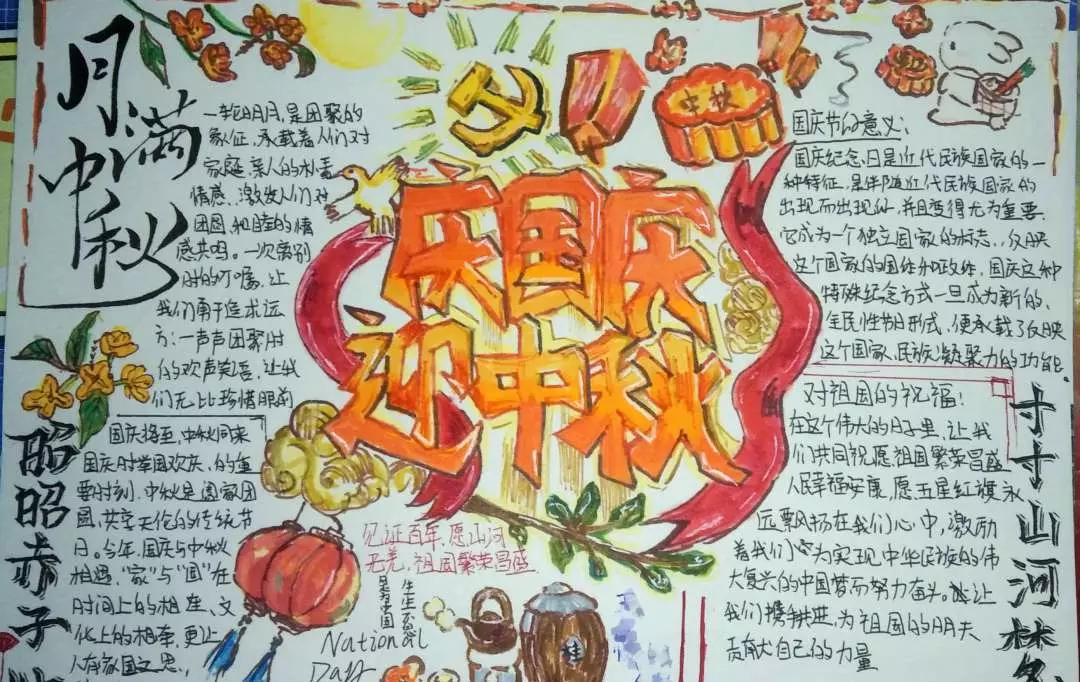 月满中秋
一轮明月,是团聚的
象征,承载着人们对
家庭、亲人的朴素
情感,激发人们对
团圆、和睦的情
感共鸣。一次离别
时的叮嘱,让
我们勇于追求远
方;一声声团聚时
的欢声笑语,让我
们无比珍惜眼前
中秋
庆国庆
迎中秋
国庆节的意义:
国庆纪念日是近代民族国家的一
种特征,是伴随近代民族国家的
出现而出现的,并且变得尤为重要.
它成为一个独立国家的标志,,反映
这个国家的国体和政体,国庆这种
特殊纪念方式一旦成为新的、
全民性节日形式,便承载了反映
这个国家、民族凝聚力的功能.
昭昭赤子
国庆将至,中秋同来
国庆时举国欢庆,的重
要时刻,中秋是阖家团
圆,共享天伦的传统节
日。今年,国庆与中秋
相遇,“家”与“国”在
时间上的相连,文
化上的相牵,更让
人有家国之思,
见证百年,愿山河
无恙,祖国繁荣昌盛
生生不息
是为中国
National
Day
桂
对祖国的祝福!
在这个伟大的日子里,让我
们共同祝愿祖国繁荣昌盛
人民幸福安康,愿五星红旗永
远飘扬在我们心中,激励
着我们为实现中华民族的伟
大复兴的中国梦而努力奋头。让
我们携手并进,为祖国的明天
贡献自己的力量
寸寸山河